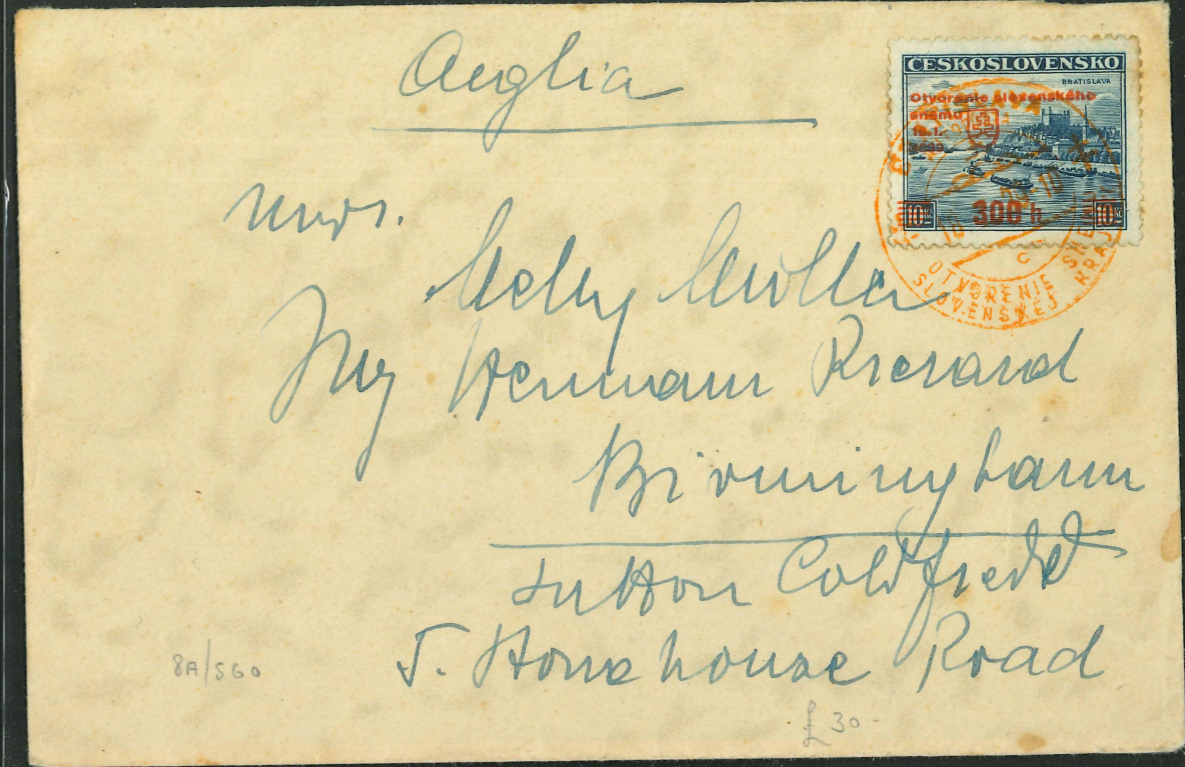 Anglia
ČESKOSLOVENSKO
BRATISLAVA
Otvorenie slovenského
snemu
18.1.
1939
300 h
10 10
OTVORENIE SNEMU
SLOVENSKEJ KRAJINY
Mrs.
Melly Müller
Ing Hermann Richard
Birmingham
Sutton Coldfield
5. Stonehouse Road
8A/560
£30-